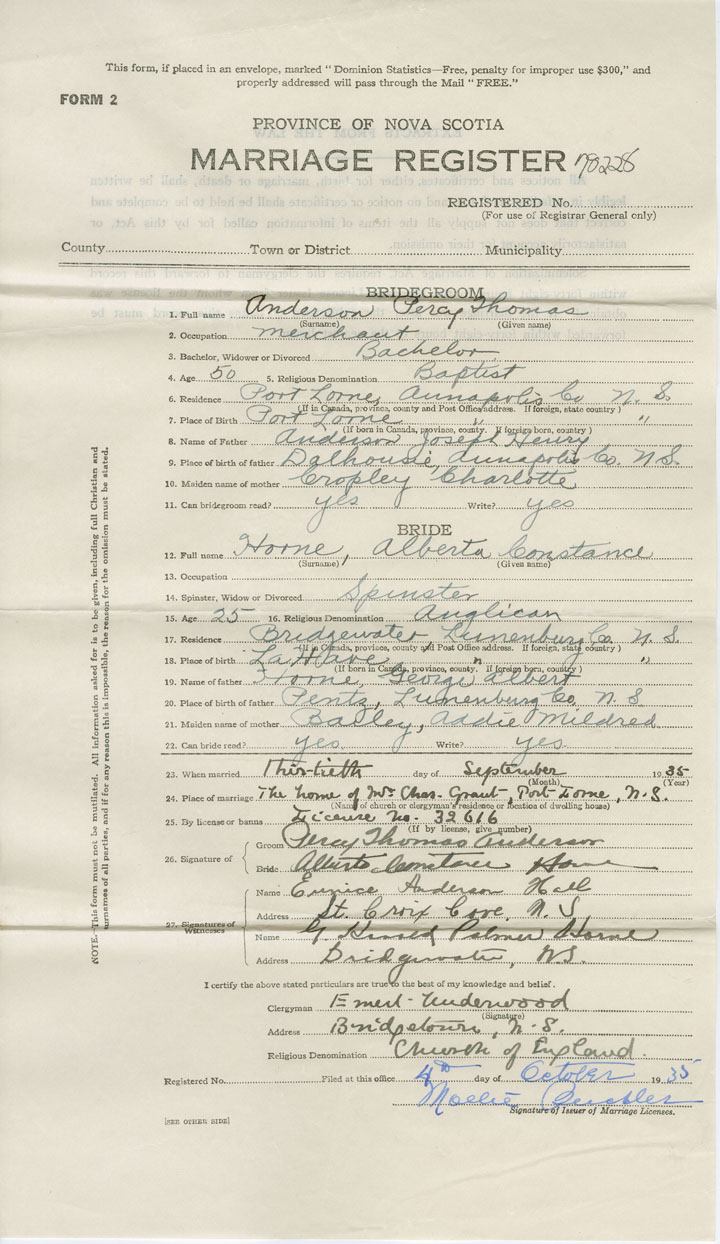 This form, if placed in an envelope, marked "Dominion Statistics—Free, penalty for improper use $300," and
properly addressed will pass through the Mail "FREE."
FORM 2
PROVINCE OF NOVA SCOTIA
MARRIAGE REGISTER 78228
REGISTERED No.
(For use of Registrar General only)
County Town or District Municipality
BRIDEGROOM
1. Full name Anderson Percy Thomas
(Surname) (Given name)
2. Occupation merchant
3. Bachelor, Widower or Divorced Bachelor
4. Age 50 5. Religious Denomination Baptist
6. Residence Port Lorne, Annapolis Co N. S.
(If in Canada, province, county and Post Office address. If foreign, state country)
7. Place of Birth Port Lorne " "
(If born in Canada, province, county. If foreign born, country)
8. Name of Father Anderson Joseph Henry
9. Place of birth of father Dalhousie, Annapolis Co. N.S.
10. Maiden name of mother Cropley Charlotte
11. Can bridegroom read? yes Write? yes
BRIDE
12. Full name Horne, Alberta Constance
(Surname) (Given name)
13. Occupation
14. Spinster, Widow or Divorced Spinster
15. Age 25 16. Religious Denomination Anglican
17. Residence Bridgewater, Lunenburg Co N. S.
(If in Canada, province, county and Post Office address. If foreign, state country)
18. Place of birth LaHave " "
(If born in Canada, province, county. If foreign born, country)
19. Name of father Horne, George Albert
20. Place of birth of father Pentz, Lunenburg Co. N. S
21. Maiden name of mother Bailey, Addie Mildred
22. Can bride read? yes Write? yes
23. When married Thirtieth day of September 1935
(Month) (Year)
24. Place of marriage The home of Mrs Chas. Grant, Port Lorne, N.S.
(Name of church or clergyman's residence or location of dwelling house)
25. By license or banns License No. 32616
(If by license, give number)
26. Signature of Groom Percy Thomas Anderson
Bride Alberta Constance Horne
27. Signatures of Witnesses Name Eunice Anderson Hall
Address St. Croix Cove, N. S
Name G. Palmer Horne
Address Bridgewater, N.S.
I certify the above stated particulars are true to the best of my knowledge and belief.
Clergyman Underwood
(Signature)
Address Bridgetown, N.S.
Religious Denomination Church of England.
Registered No. Filed at this office 4th day of October 1935
Mollie
Signature of Issuer of Marriage Licenses.
[SEE OTHER SIDE]
NOTE—This form must not be mutilated. All information asked for is to be given, including full Christian and
surnames of all parties, and if for any reason this is impossible, the reason for the omission must be stated.